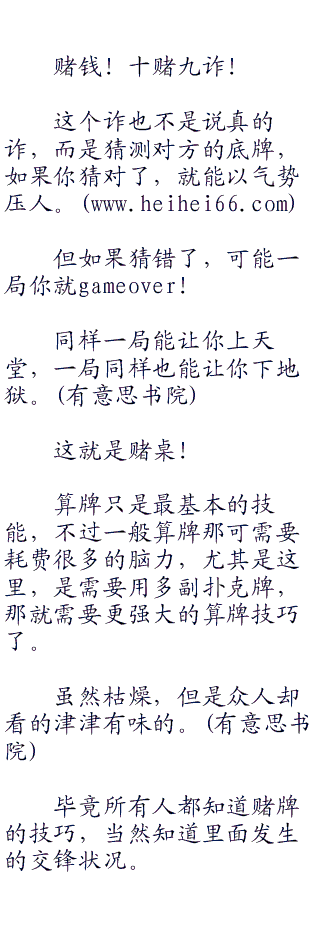 赌钱！十赌九诈！
这个诈也不是说真的
诈，而是猜测对方的底牌，
如果你猜对了，就能以气势
压人。(www.heihei66.com)
但如果猜错了，可能一
局你就gameover！
同样一局能让你上天
堂，一局同样也能让你下地
狱。(有意思书院)
这就是赌桌！
算牌只是最基本的技
能，不过一般算牌那可需要
耗费很多的脑力，尤其是这
里，是需要用多副扑克牌，
那就需要更强大的算牌技巧
了。
虽然枯燥，但是众人却
看的津津有味的。(有意思书
院)
毕竟所有人都知道赌牌
的技巧，当然知道里面发生
的交锋状况。